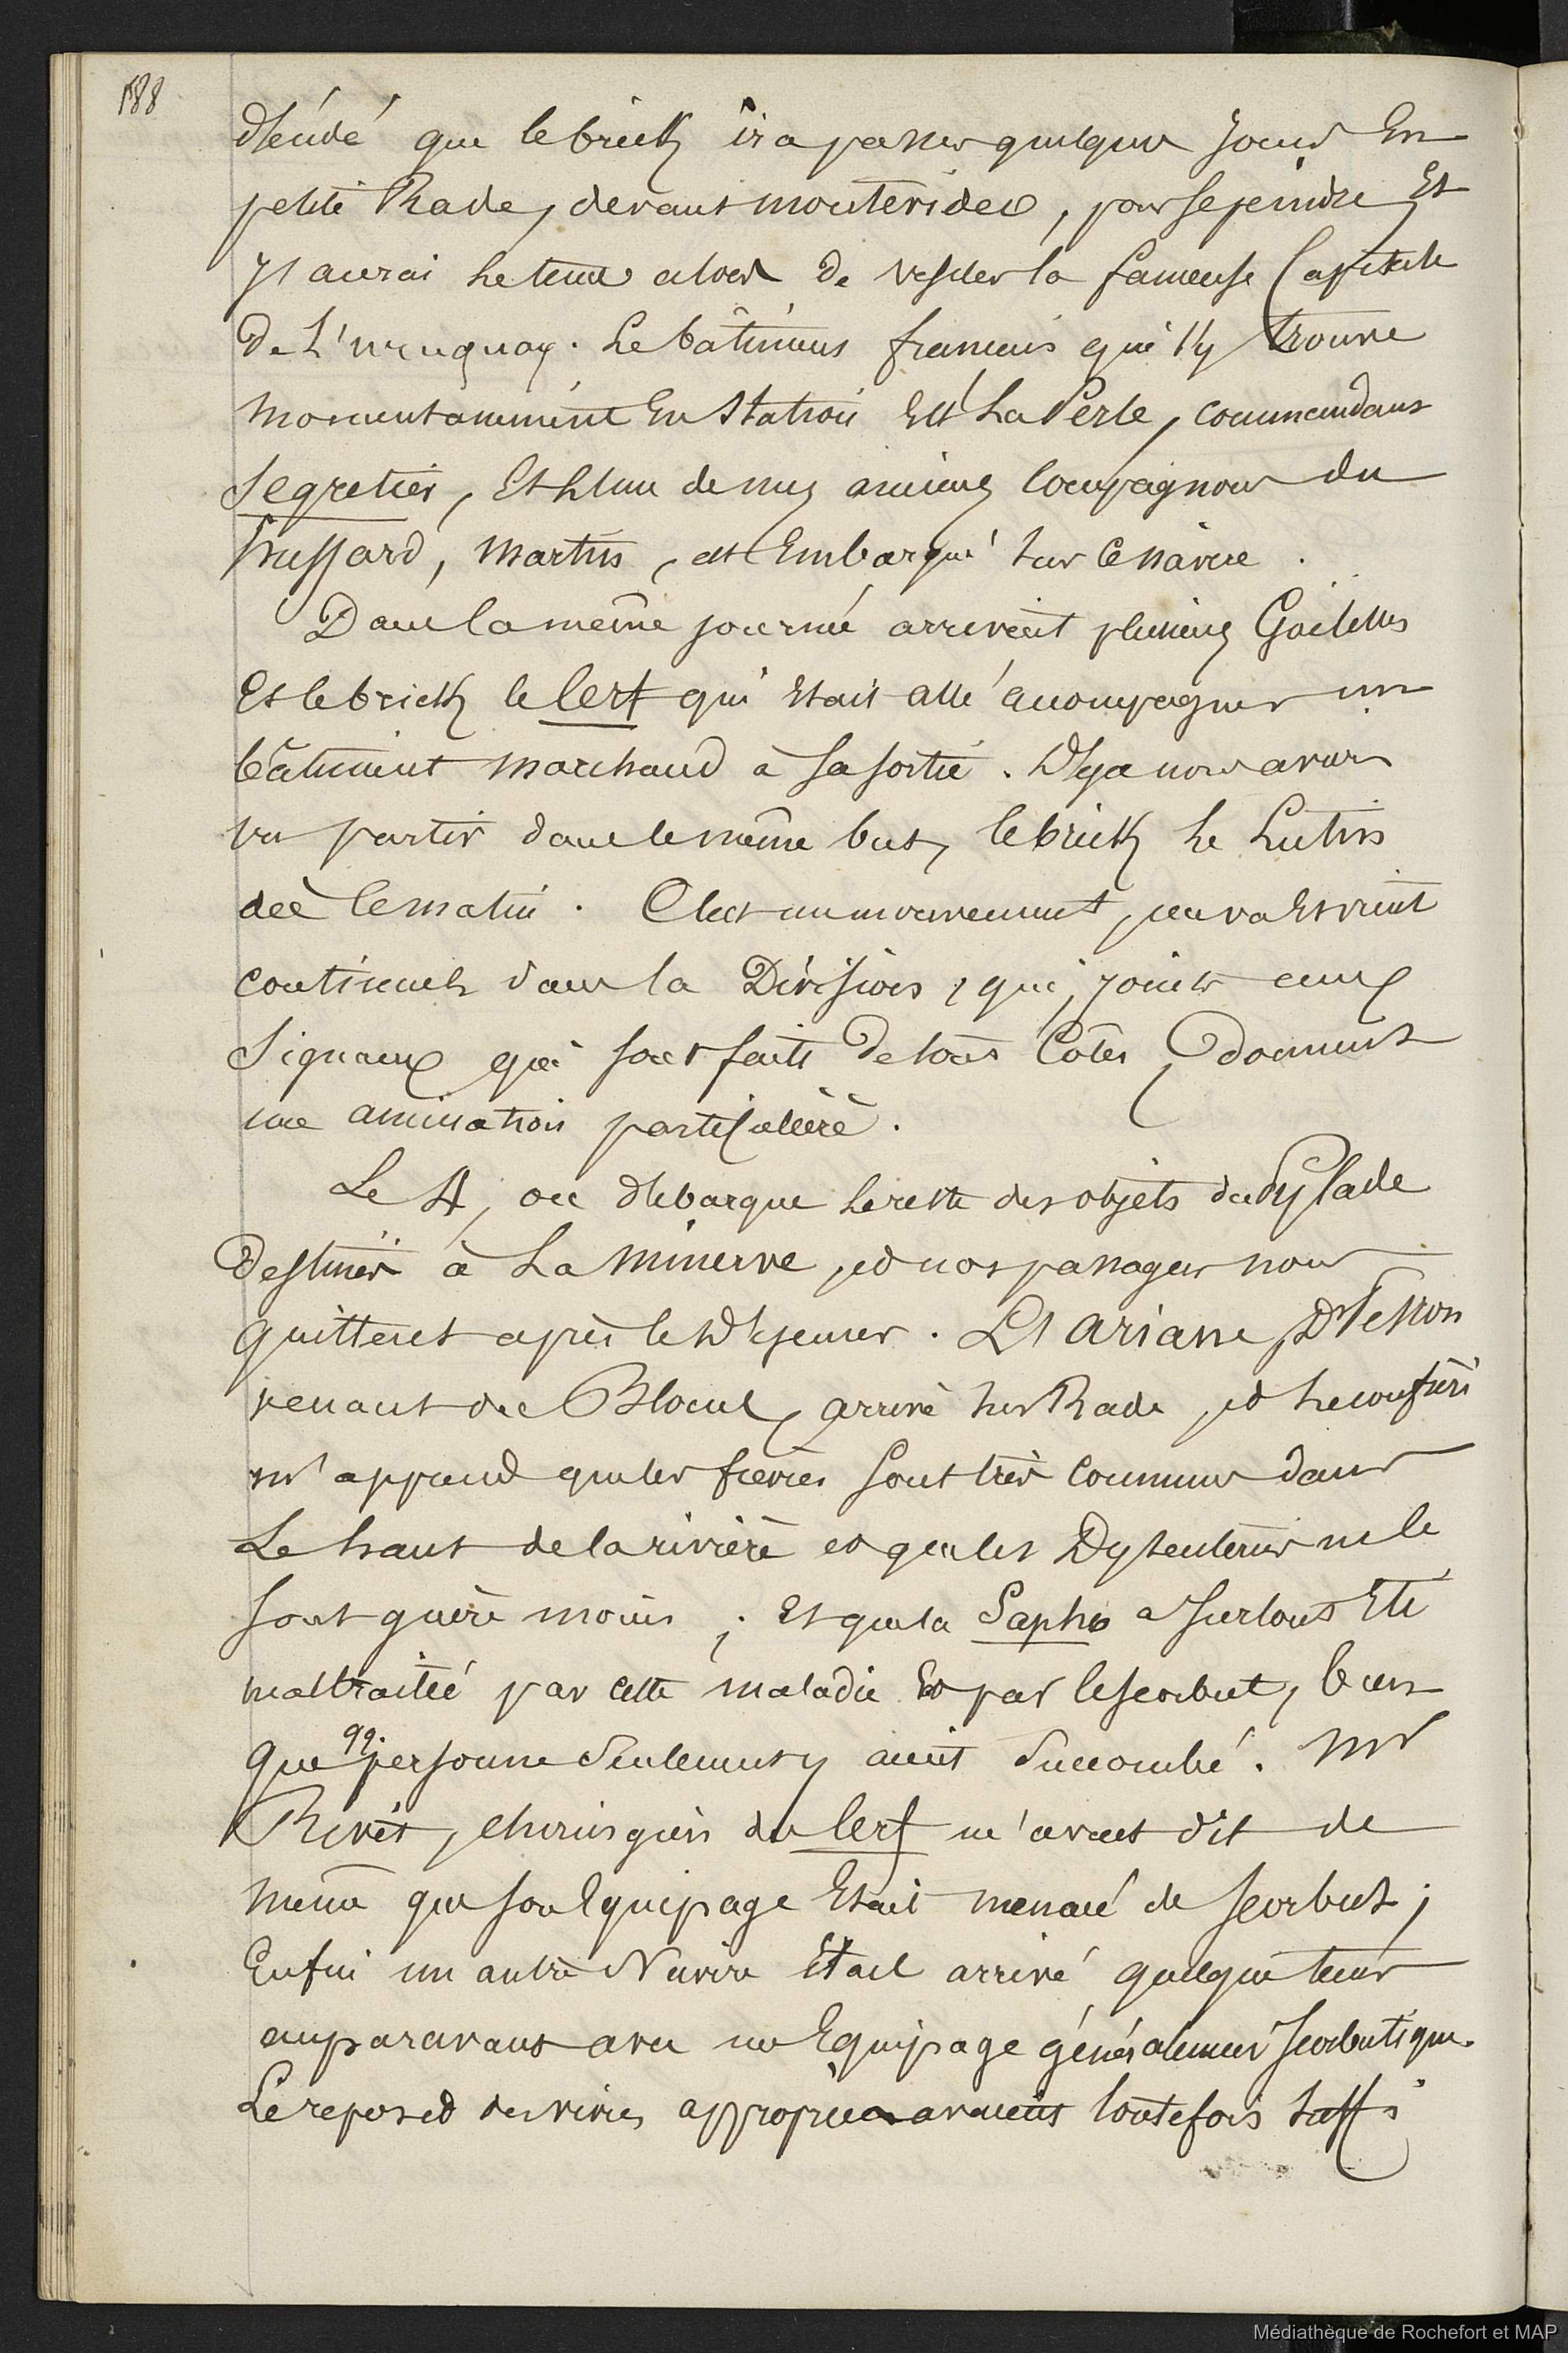 188
décidé que le brick ira passer quelques jours En
petite Rade, devant montevideo, pour se peindre Et
j'aurai le tems alors de visiter la fameuse Capitale
de L'uruguay. Le bâtiment francais qui s'y trouve
momentanément En Station Est La Perle, commandant
Segretier, Et L'un de mes anciens Compagnons du
hussard, Martin, est Embarqué sur ce navire.
Dans la même journée arrivent plusieurs Goëlettes
Et le brick le Cerf qui Etait allé accompagner un
bâtiment marchand à sa sortie. Déja nous avons
vu partir dans le même but, le brick Le Lutin
dès le matin. C'est un mouvement, un va Et vient
continuels dans la Division, qui, joints aux
Signaux qui sont faits de tous Côtés, donnent
une animation particulière.
Le 4, on débarque le reste des objets du Pylade
Destinés à La Minerve, et nos passagers nous
quittent après le déjeuner. L'Ariane, Dr Tesson
venant du Blocus, arrive sur Rade, et le confrère
m'apprend que les fièvres sont très communes dans
Le haut de la rivière et que les Dysenteries ne le
sont guère moins; Et que la Sapho a surtout Eté
maltraitée par cette maladie Et par le scorbut, bien
que qq. personnes Seulement y aient Succombé. Mr
Rivet, chirurgien du Cerf m'avait dit de
même que son Equipage Etait menacé de scorbut;
Enfin un autre Navire Etait arrivé quelque tems
auparavant avec un Equipage généralement scorbutique.
Le repos et des vivres appropriés avaient toutefois suffi
Médiathèque de Rochefort et MAP